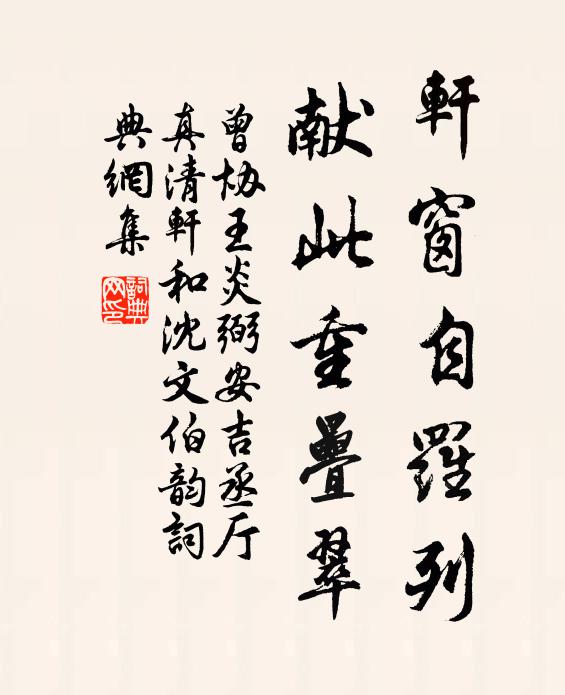 軒窗自羅列
献此重疊翠
曾协王炎弼安吉丞厅
真清軒和沈文伯韵詞
典網集
詞典网印